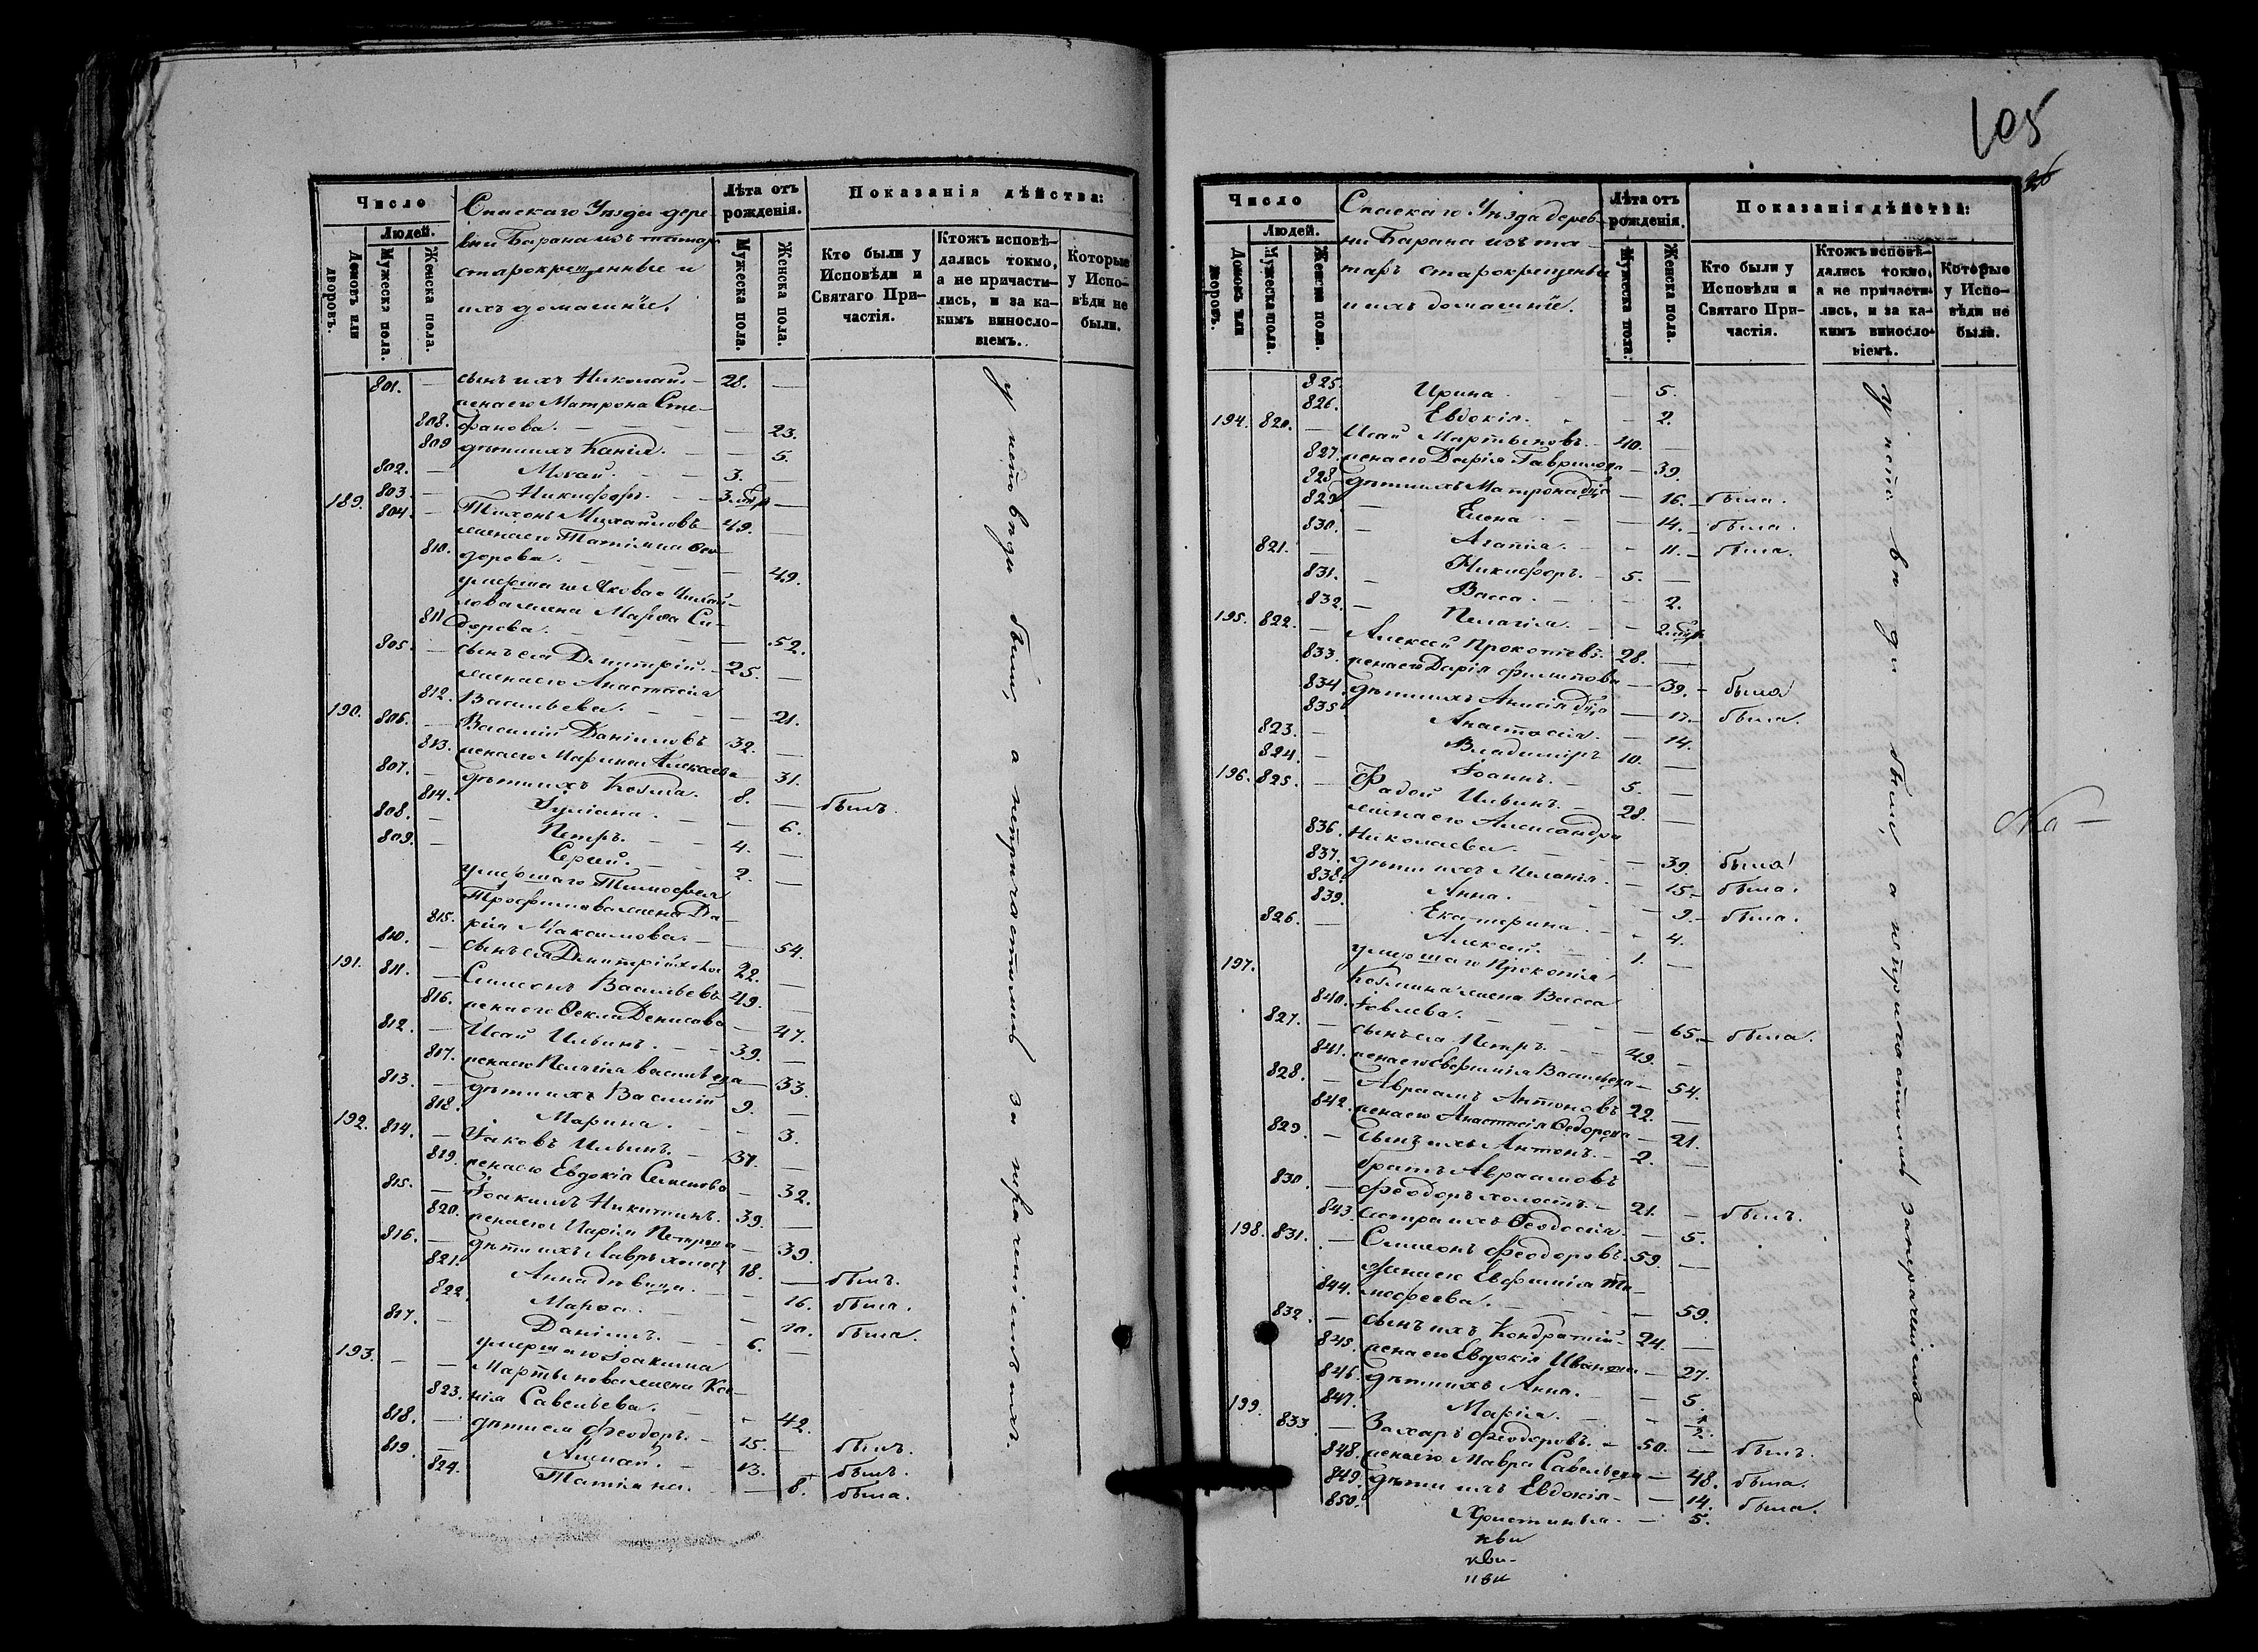 Число
Людей.
Домовъ или дворовъ.
Мужеска пола.
Женска пола.
Спаскаго Уѣзда дере
вни Барана изъ татар
старокрещенные и
ихъ домашніи.
Лѣта отъ рожденія.
Мужеска пола.
Женска пола.
Показанія дѣйства:
Кто были у Исповѣди и Святаго Причастія.
Ктожъ исповѣдались токмо, а не причастились, и за какимъ винословіемъ.
Которые у Исповѣди не были.
801. — сынъ ихъ Николай. — 28. —
жена его Матрона Сте-
808. фанова. — — 23.
809 дѣти ихъ Ксенія. — — 5.
802. — Исай. — 3. —
803. — Никифоръ. — 3.
189. 804. — Тихонъ Михайловъ 49. —
жена его Татіана Ѳео-
810. дорова. — — 49.
умершаго Якова Михай-
лова жена Марѳа Си-
811 дорова. — — 52.
805. — сынъ ея Димитрій. — 25. —
жена его Анастасія
812. Васильева. — — 21.
190. 806. — Василій Даніиловъ 32. —
813. жена его Марина Алексѣева — 31.
807. — дѣти ихъ Козма. 8. — былъ.
814. Іуліана. — — 6.
808. — Петръ. — 4. —
809. — Сергій. — 2. —
умершаго Тимофея
Трофимова жена Да-
815. рія Максимова. — — 54.
810. — сынъ ея Димитрій хол 22. —
191. 811. — Симеонъ Васильевъ 49. —
816. жена его Ѳекла Денисова — 47.
812. — Исай Ильинъ. — 39. —
817. жена его Пелагія Васильева — 33.
813. — дѣти ихъ Василій 9. —
818. Марина. — — 3.
192. 814. — Іаковъ Ильинъ. — 37. —
819. жена его Евдокіа Семенова — 32.
815. — Іоакимъ Никитинъ. 39. —
820. жена его Марія Петрова — 39.
816. — дѣти ихъ Лавръ холост 18. — былъ.
821. Анна дѣвица. — 16. была.
822. Марѳа. — — 10. была.
817. — Даніилъ. — 6. —
193. — — умершаго Іоакима
Мартынова жена Ксе-
823. нія Савельева. — — 42.
818. — дѣти ея Ѳеодоръ. — 15. — былъ.
819. — 13. — былъ.
824. Татіяна. — 8. была.
у исповѣди были, а непричастились за воспрещеніемъ ихъ.
105
Число
Людей.
Домовъ или дворовъ.
Мужеска пола.
Женска пола.
Спаскаго Уѣзда дерев-
ни Барана изъ та-
таръ старокрещены
и ихъ домашніи.
Лѣта отъ рожденія.
Мужеска пола.
Женска пола.
Показанія дѣйства:
Кто были у Исповѣди и Святаго Причастія.
Ктожъ исповѣдались токмо, а не причастились, и за какимъ винословіемъ.
Которые у Исповѣди не были.
825. Ирина. — 5.
826. Евдокія. — 2.
194. 820. — Исай Мартыновъ. — 40. —
827. жена его Дарія Гаврилова — 39.
828 дѣти ихъ Матрона дѣв — 16. — была.
829 Елена. — 14. — была.
830. Агапія. — 11. — была.
821. — Никифоръ. — 5. —
831. Васса. — 2.
832. Пелагія. —
195. 822. — Алексѣй Прокопіевъ. 28. —
833. жена его Дарія Филипова — 39. — была
834. дѣти ихъ Анисія дѣв — 17. — была.
835 Анастасія. — 14.
823. — Владиміръ 10. —
824. — Іоаннъ. — 5. —
196. 825. — Фадей Ильинъ. — 28. —
жена его Александра
836. Николаева. — 39. была
837. дѣти ихъ Меланія. — 15. — была.
838. Анна. — 9. — была.
839. Екатерина. — 4.
826. — Алексѣй. — 1. —
197. умершаго Прокопія
Козмина жена Васса
840. Іовлева. — — 65. — была.
827. — сынъ ея Петръ. — 49. —
841. жена его Евфимія Васильева — 54.
828. — Авраамъ Антоновъ 22. —
842. жена его Анастасія Ѳедорова — 21.
829. — сынъ ихъ Антонъ. — 2. —
братъ Авраамовъ
830. — Феодоръ холостъ. — 21. — былъ.
843. сестра ихъ Ѳеодосія. — 5.
198. 831. — Симеонъ Феодоровъ. 59. —
жена его Евфимія Ти-
844. мофеева. — — 59.
832. — сынъ ихъ Кондратій — 24. —
845. жена его Евдокія Иванова — 27.
846. дѣти ихъ Анна. — — 5.
847. Марія. — 2.
199. 833 — Захаръ Феодоровъ. — 50. — былъ.
848. жена его Мавра Савельева — 48. была.
849. дѣти ихъ Евдокія — — 14. была.
850. Христинья. — 5.
у исповѣди были, а непричастились за воспрещеніемъ